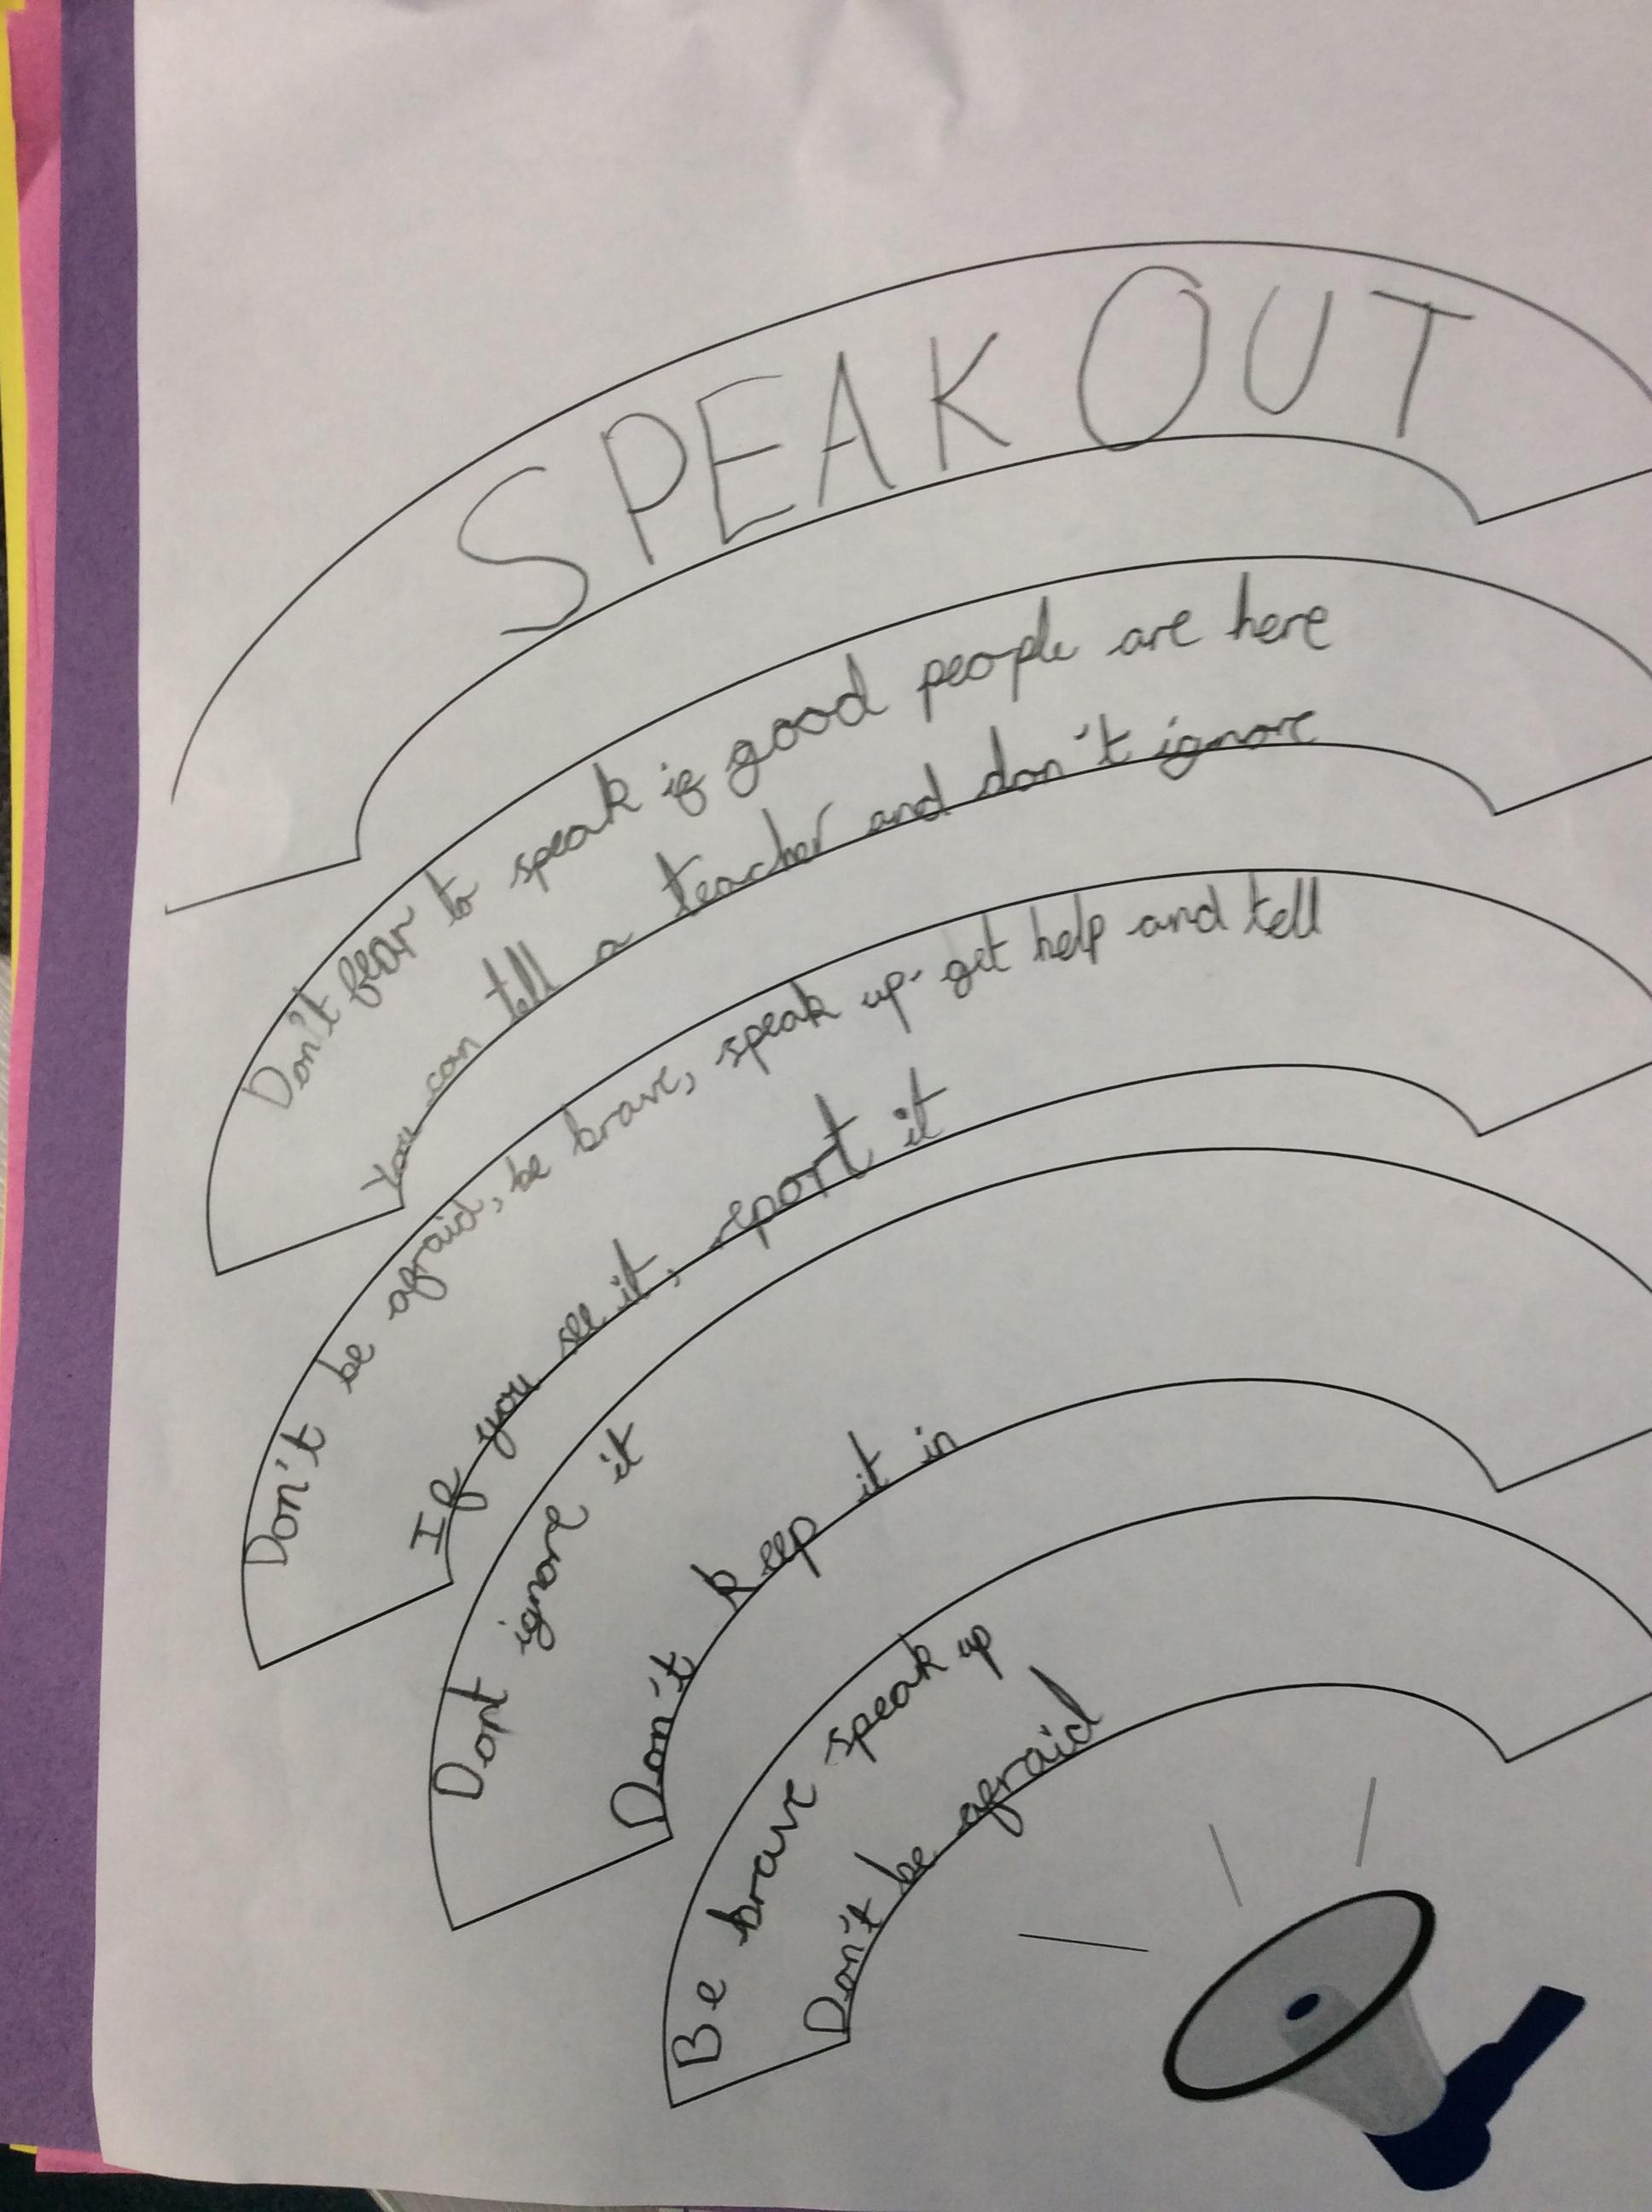 SPEAK OUT
Don't fear to speak if good people are here
You can tell a teacher and don't ignore
Don't be afraid, be brave, speak up. get help and tell
If you see it, report it
Dont ignore it
Don't keep it in
Be brave speak up
Don't be afraid